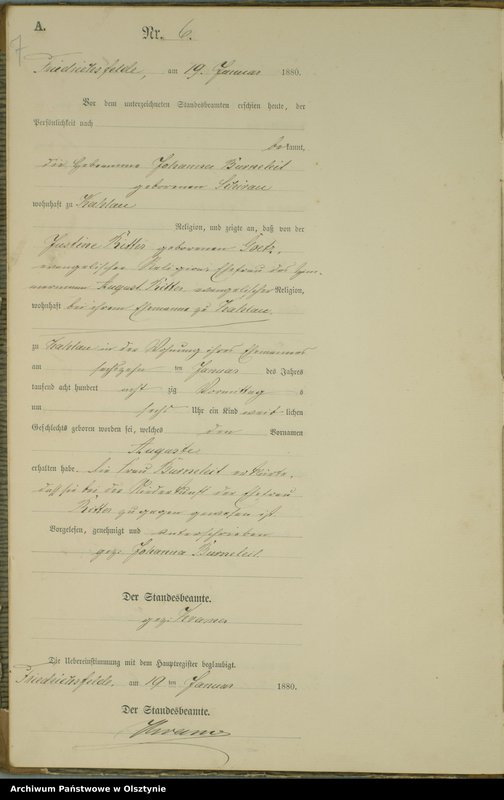 A.
Nr. 6.
7
Friedrichsfelde, am 19. Januar 1880.
Vor dem unterzeichneten Standesbeamten erschien heute, der
Persönlichkeit nach
bekannt,
die Hebamme Johanna
geborenen
wohnhaft zu
Religion, und zeigte an, daß von der
Justine Ritter geborenen
evangelischer Religion, Ehefrau des
August Ritter evangelischer Religion,
wohnhaft bei ihrem Ehemanne zu
zu in der Wohnung ihres Ehemannes
am sechszehn ten Januar des Jahres
tausend acht hundert acht zig Vormittag s
um sechs Uhr ein Kind weib lichen
Geschlechts geboren worden sei, welches den Vornamen
Auguste
erhalten habe. Die Frau erklärte,
daß sie bei der Niederkunft der Ehefrau
Ritter zugegen gewesen ist.
Vorgelesen, genehmigt und unterschrieben
gez. Johanna
Der Standesbeamte.
gez.
Die Uebereinstimmung mit dem Hauptregister beglaubigt.
Friedrichsfelde, am 19 ten Januar 1880.
Der Standesbeamte.
Archiwum Państwowe w Olsztynie